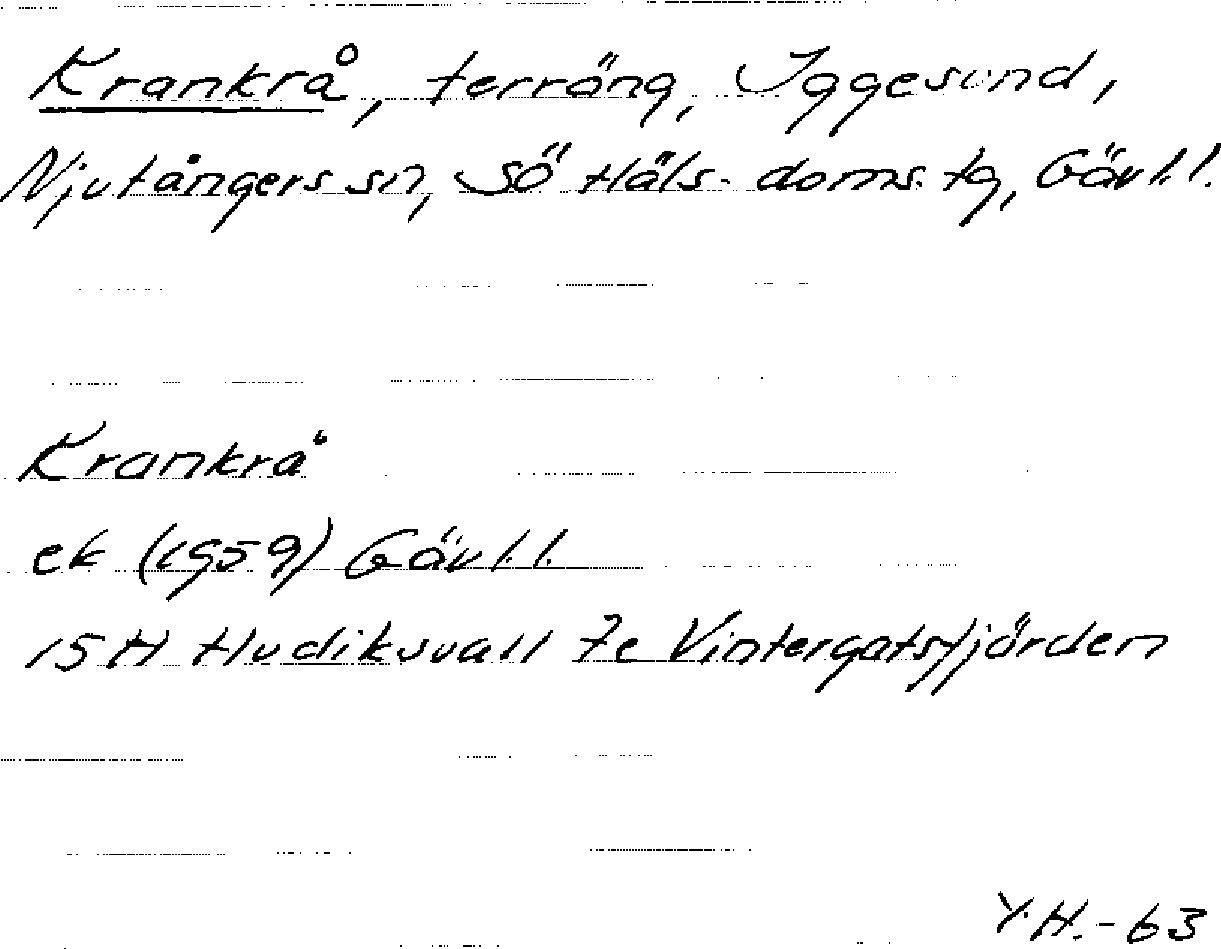 Krankrå, terräng, Iggesund,
Njutångers sn, Sö Häls. doms. tg, Gävl. l.
Krankrå
ek (1959) Gävl. l.
15H Hudiksvall 7e Vintergatsfjärden
Y.H.-63